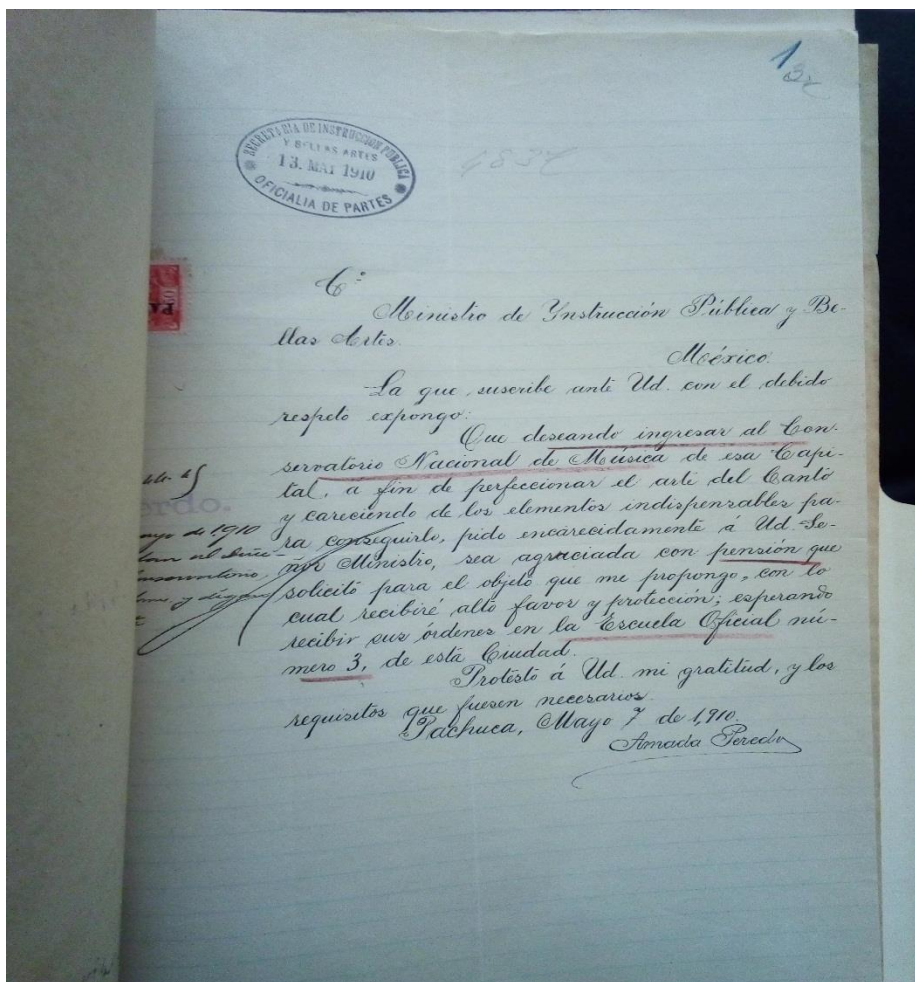 1
SECRETARIA DE INSTRUCCION PUBLICA
Y BELLAS ARTES
13. MAY 1910
OFICIALIA DE PARTES
C.
Ministro de Ynstrucción Pública y Be-
llas Artes.
México.
La que suscribe ante Ud. con el debido
respeto expongo:
Que deseando ingresar al Con-
servatorio Nacional de Música de esa Capi-
tal, a fin de perfeccionar el arte del Canto
y careciendo de los elementos indispensables pa-
ra conseguirlo, pido encarecidamente á Ud. Se-
ñor Ministro, sea agraciada con pensión que
solicito para el objeto que me propongo, con lo
cual recibiré alto favor y protección; esperando
recibir sus órdenes en la Escuela Oficial nú-
mero 3, de esta Ciudad.
Protesto á Ud. mi gratitud, y los
requisitos que fuesen necesarios.
Pachuca, Mayo 7 de 1,910.
Amada Peredo
erdo.
de 1910
y